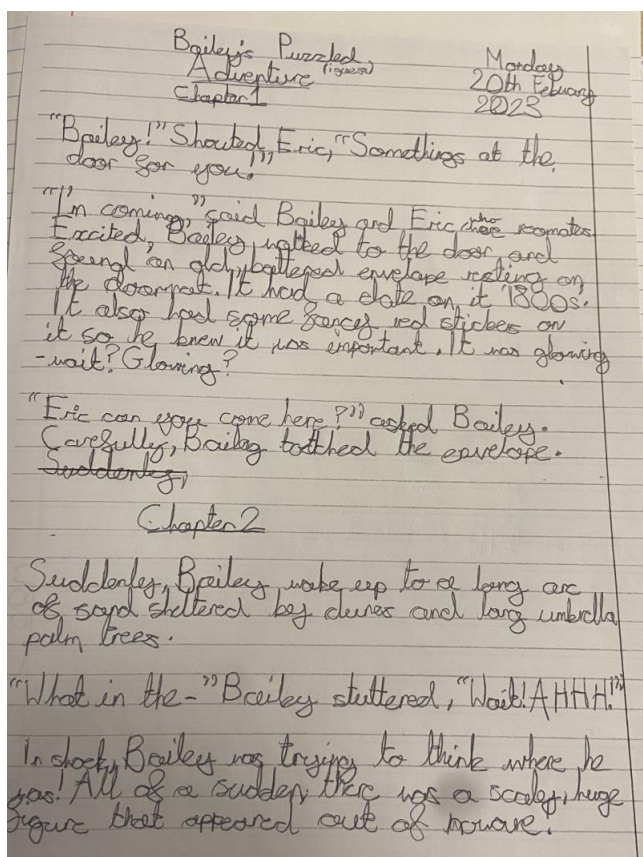 Bailey's Puzzled,
Adventure (iguess)
Chapter 1
Monday
20th Febuary
2023
"Bailey!" Shouted, Eric, "Somethings at the
door for you!"
"I'm coming," said Bailey and Eric who were roomates.
Excited, Bailey walked to the door, and
found an old, battered envelope resting on
the doormat. It had a date on it 1800s.
It also had some fancy red stickers on
it so he knew it was important. It was glowing
-wait? Glowing?
"Eric can you come here?" asked Bailey.
Carefully, Bailey totched the envelope.
Suddenley,
Chapter 2
Suddenley, Bailey woke up to a long arc
of sand sheltered by dunes and large umbrella
palm trees.
"What in the-" Bailey stuttered, "Wait! AHHH!"
In shock, Bailey was trying to think where he
was! All of a sudden, there was a scaley, huge
figure that appeared out of